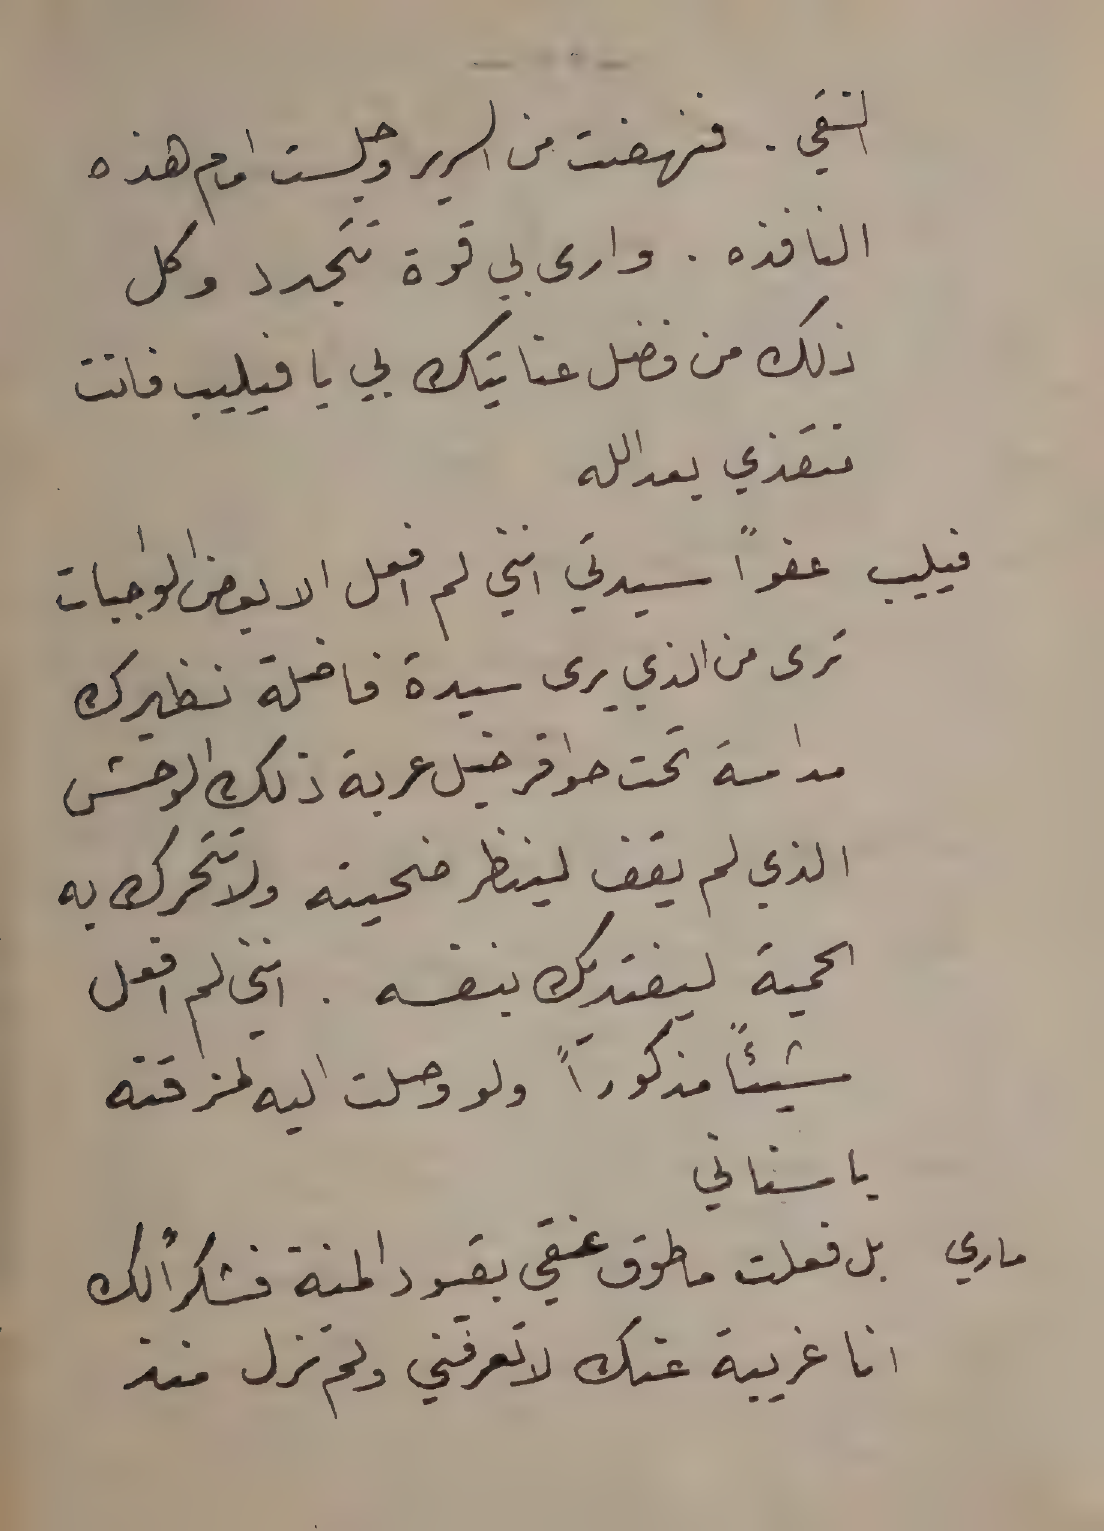 النقي . فنهضت من السرير وجلست امام هذه
النافذه . وارى بي قوة تتجدد وكل
ذلك من فضل عنايتك بي يا فيليب فانت
تنقذي بعد الله
فيليب عفواً سيدتي انني لم افعل الا بعض الواجبات
ترى من الذي يرى سيدة فاضلة نظيرك
مداسة تحت حوافر خيل عربة ذلك الوحش
الذي لم يقف لينظر ضحيته ولا تتحرك به
الحمية ليفتديك بنفسه . انني لم افعل
شيئاً مذكوراً ولو وصلت اليه لمزقته
باسناني
ماري بل فعلت ما طوق عنقي بقيود المنة فشكراً لك
انا غريبة عنك لا تعرفني ولم تزل منذ